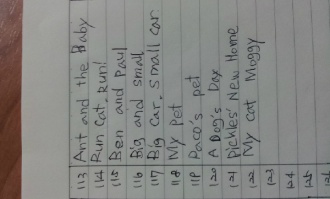 113 Ant and the Baby
114 Run Cat, Run!
115 Ben and Paul
116 Big and small
117 Big Car, small car
118 My Pet
119 Paco's pet
120 A Dog's Day
121 Pickles' New Home
122 My cat Moggy
123
124
125
126